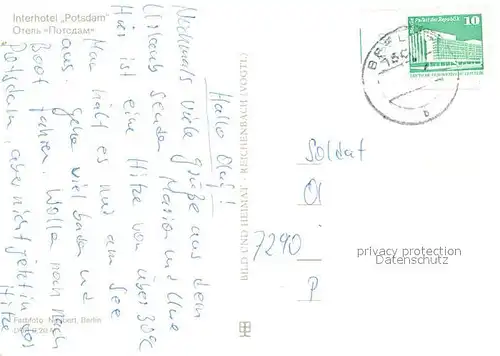 Interhotel „Potsdam"
Отель »Потсдам«
Hallo Olaf!
Nochmals viele grüße aus dem
Urlaub senden Marion und Uwe
Hier ist eine Hitze von über 30°C
Man hält es nur am See
aus. gehe viel baden und
Boot fahren. Wollen noch nach
Potsdam, aber nicht jetzt in der
Hitze
Farbfoto: Neubert, Berlin
BILD UND HEIMAT · REICHENBACH (VOGTL)
Palast der Republik
10
BERLIN
Soldat
O
7290
P
privacy protection
Datenschutz